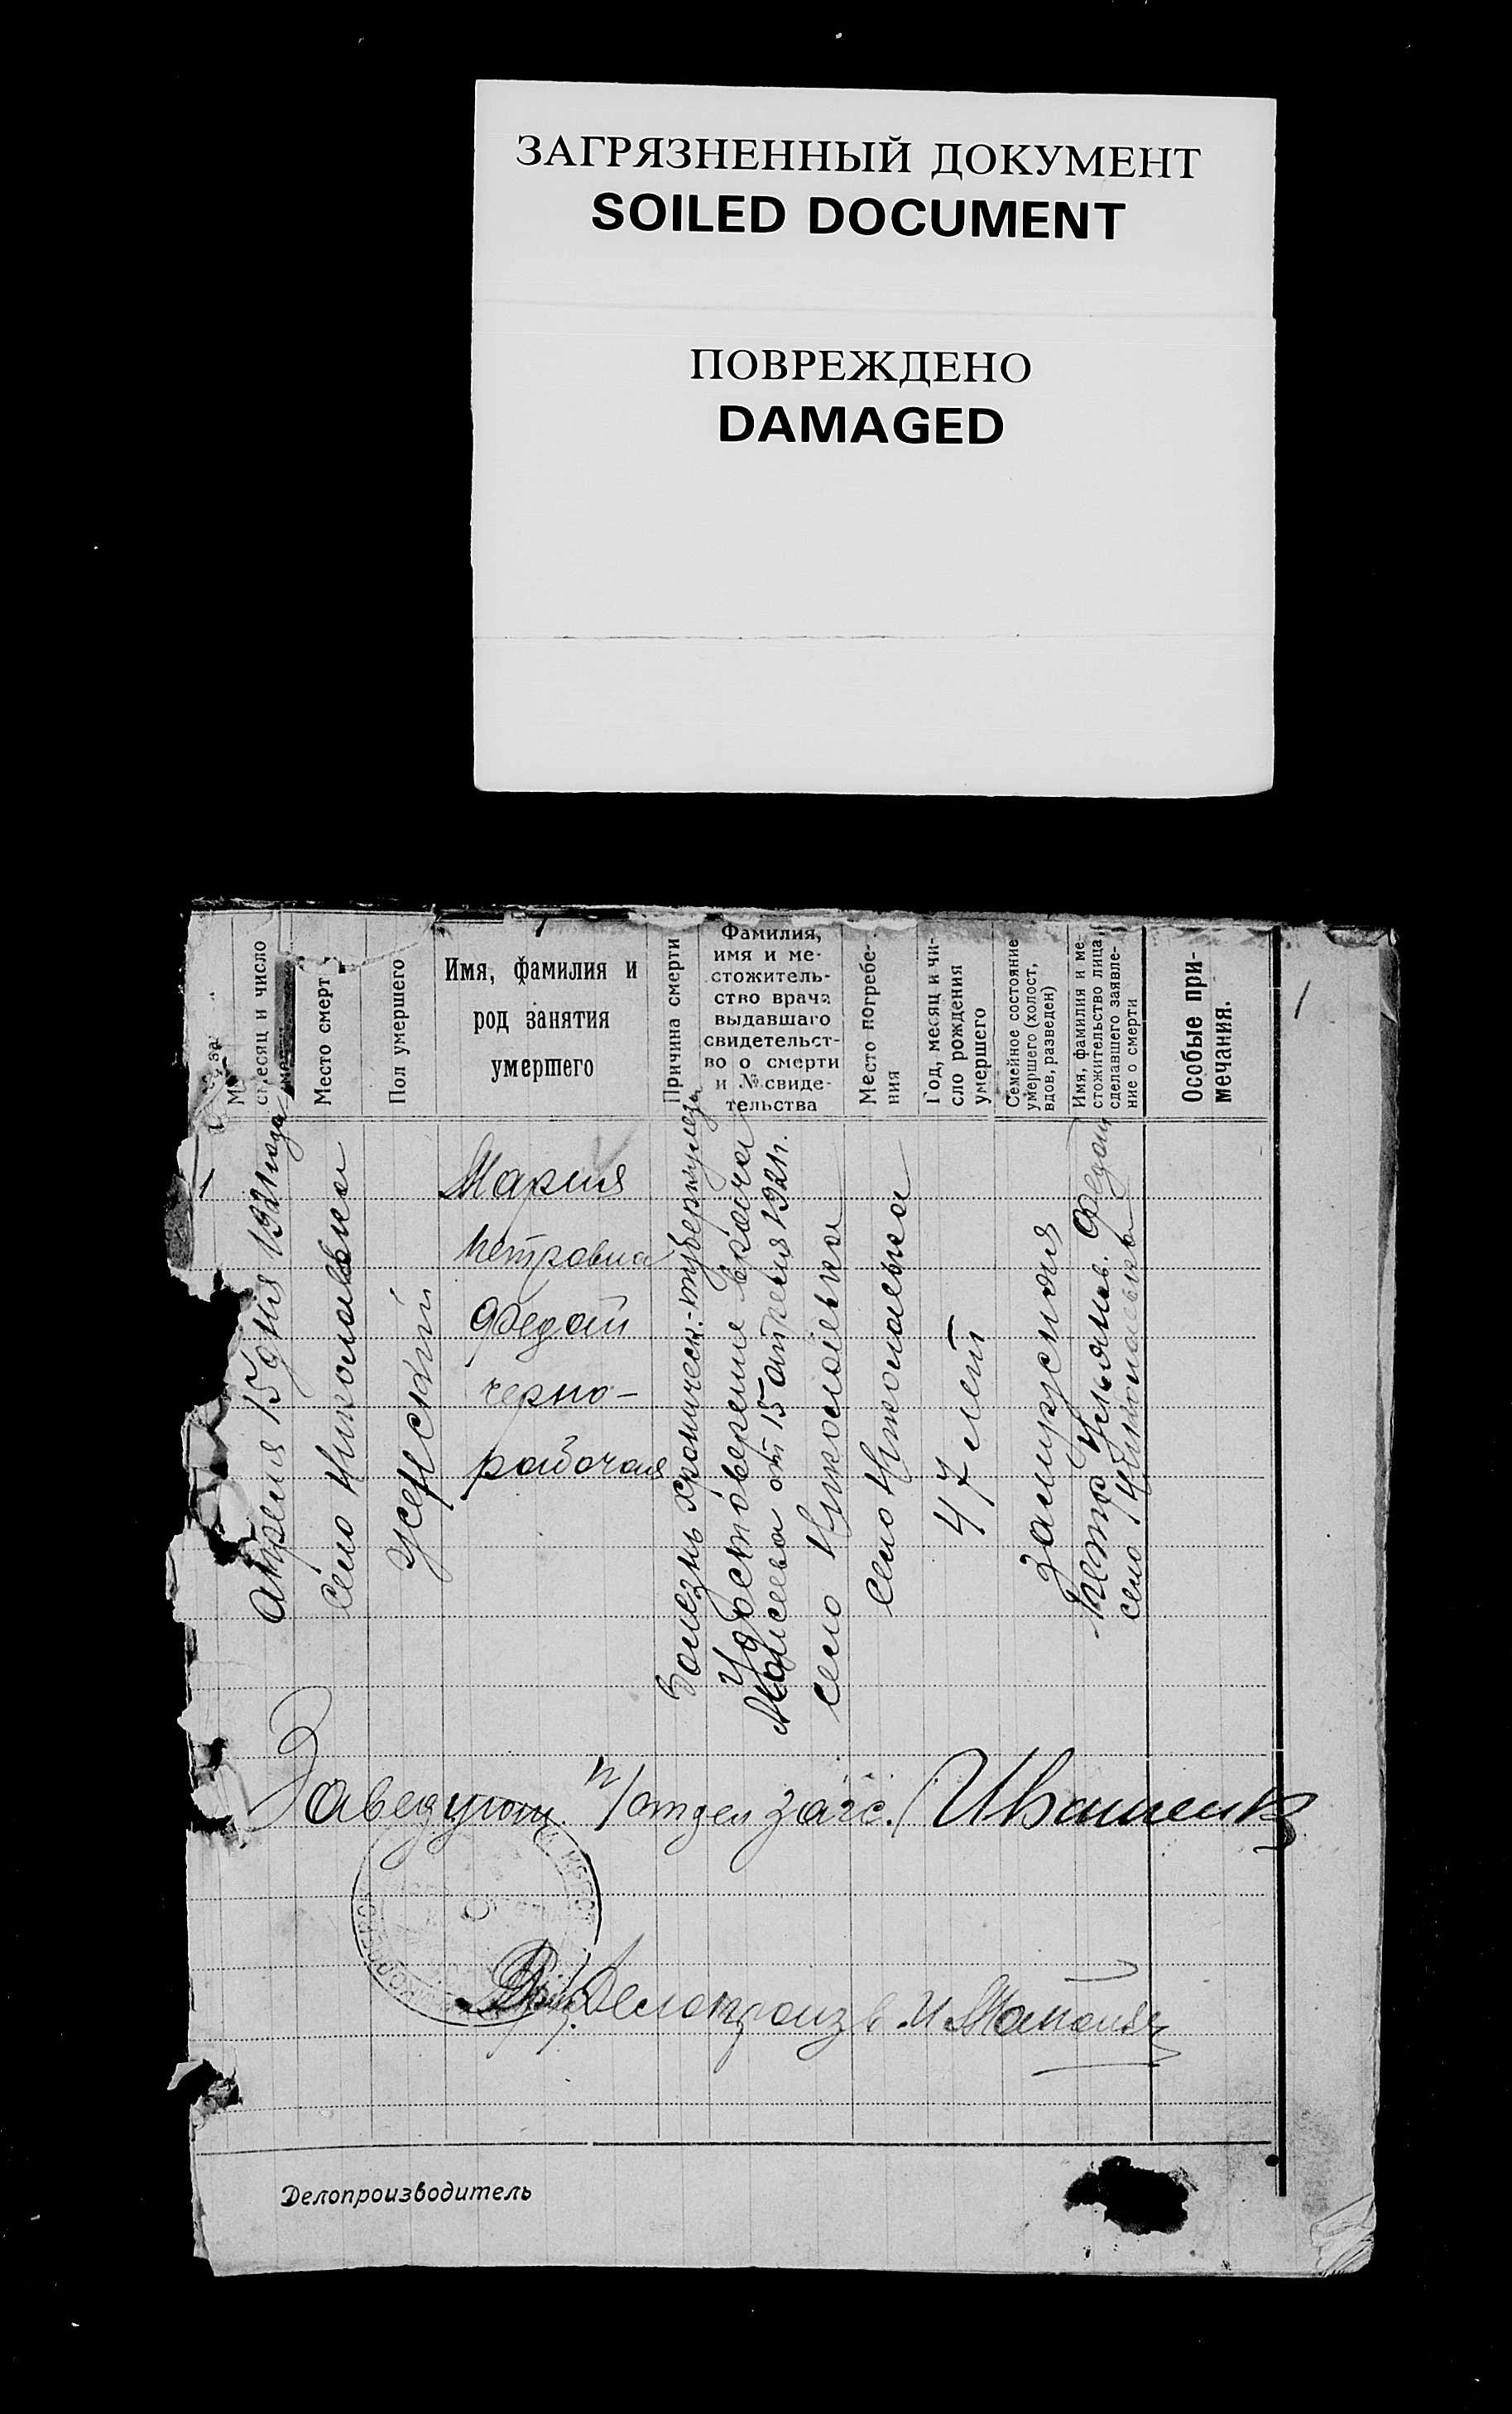 ЗАГРЯЗНЕННЫЙ ДОКУМЕНТ
SOILED DOCUMENT
ПОВРЕЖДЕНО
DAMAGED
1
месяц и число
Место смерт
Пол умершего
Имя, фамилия и
род занятия
умершего
Причина смерти
Фамилия,
имя и ме-
стожитель-
ство врача
выдавшаго
свидетельст-
во о смерти
и №свиде-
тельства
Место погребе-
ния
Год, месяц и чи-
сло рождения
умершего
Семейное состояние
умершего (холост,
вдов, разведен)
Имя, фамилия и ме-
стожительство лица,
сделавшего заявле-
ние о смерти
Особые при-
мечания.
1
Апреля 15 дня 1921 года
село Николаевка
женский
Мария
Петровна
Федай
черно-
рабочая
Болезнь хроническ.-туберкулеза
Удостоверение врача
от 15 апреля 1921 г.
село Николаевка
село Николаевка
47 лет
замужняя
Петр Ульянов. Федай
село Николаевка
Заведующ. п/отдел загс. Ивашенко
Делопроизв. И
Делопроизводитель